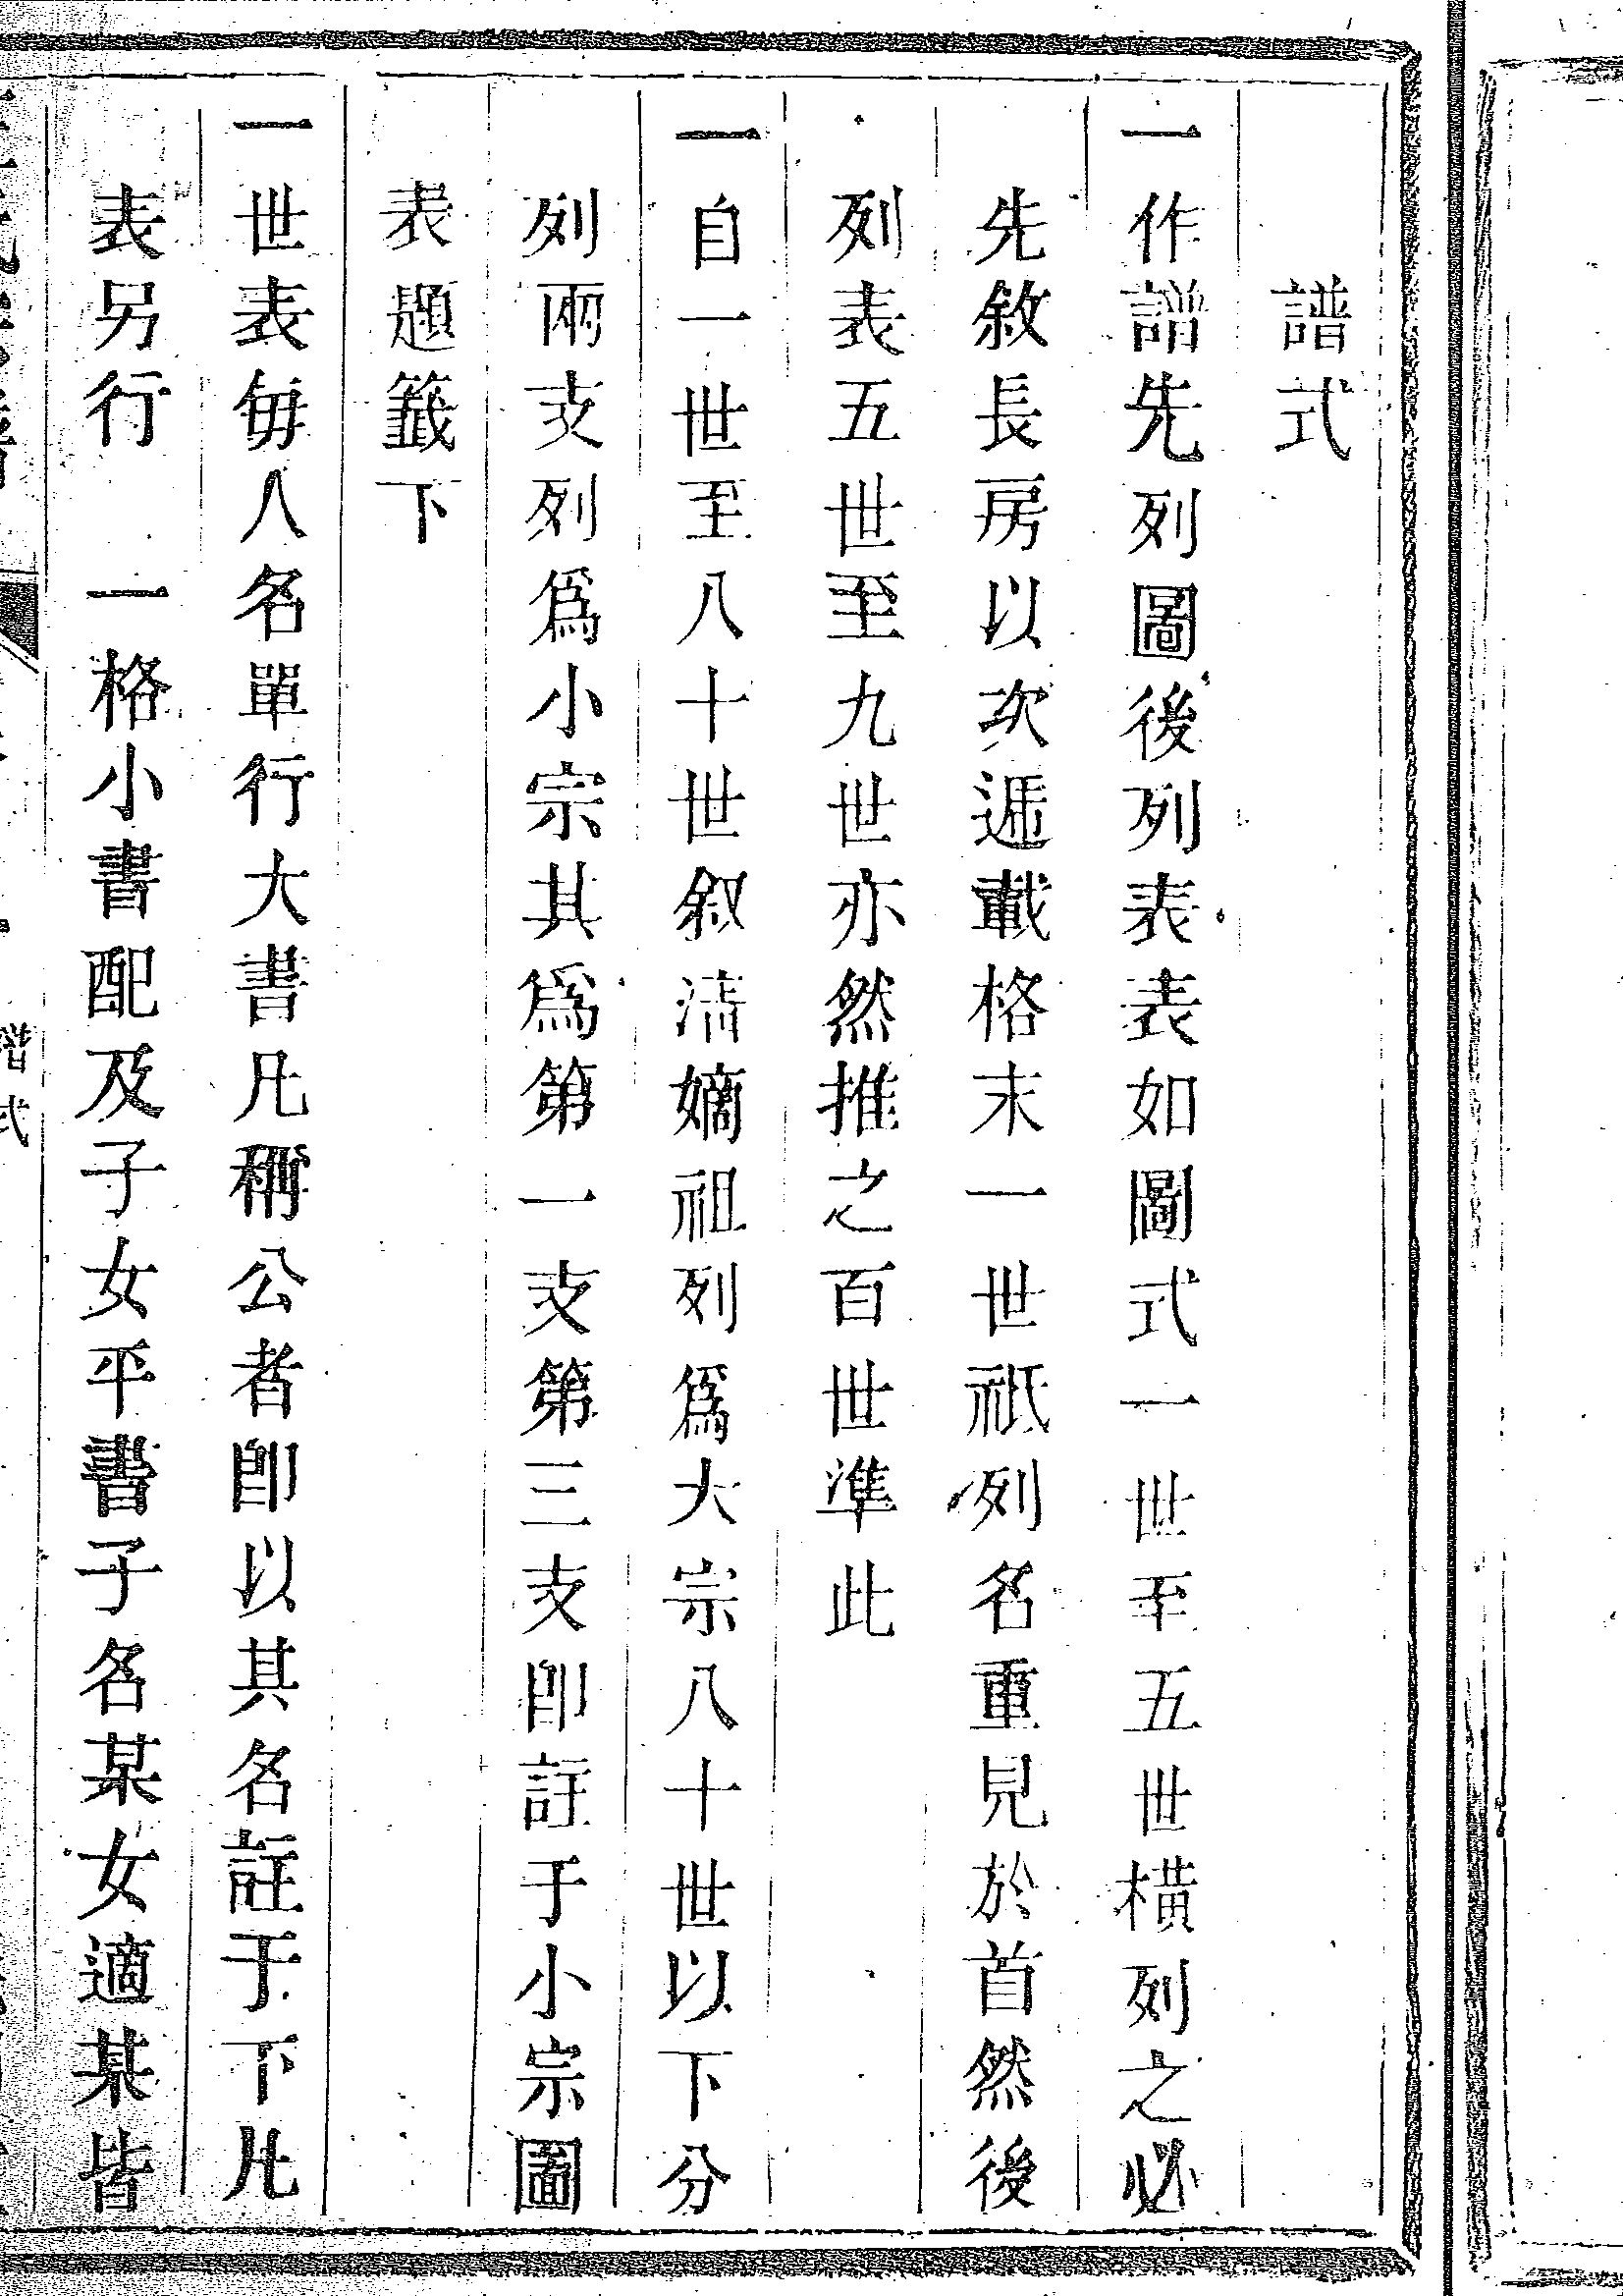 譜式
一作譜先列圖後列表表如圖式一世至五世橫列之必
先敘長房以次遞載格末一世祇列名重見於首然後
列表五世至九世亦然推之百世準此
一自一世至八十世叙清嫡祖列爲大宗八十世以下分
列兩支列爲小宗其爲第一支第三支卽註于小宗圖
表題籤下
一世表每人名單行大書凡稱公者卽以其名註于下凡
表另行 一格小書配及子女平書子名某女適某皆
譜式